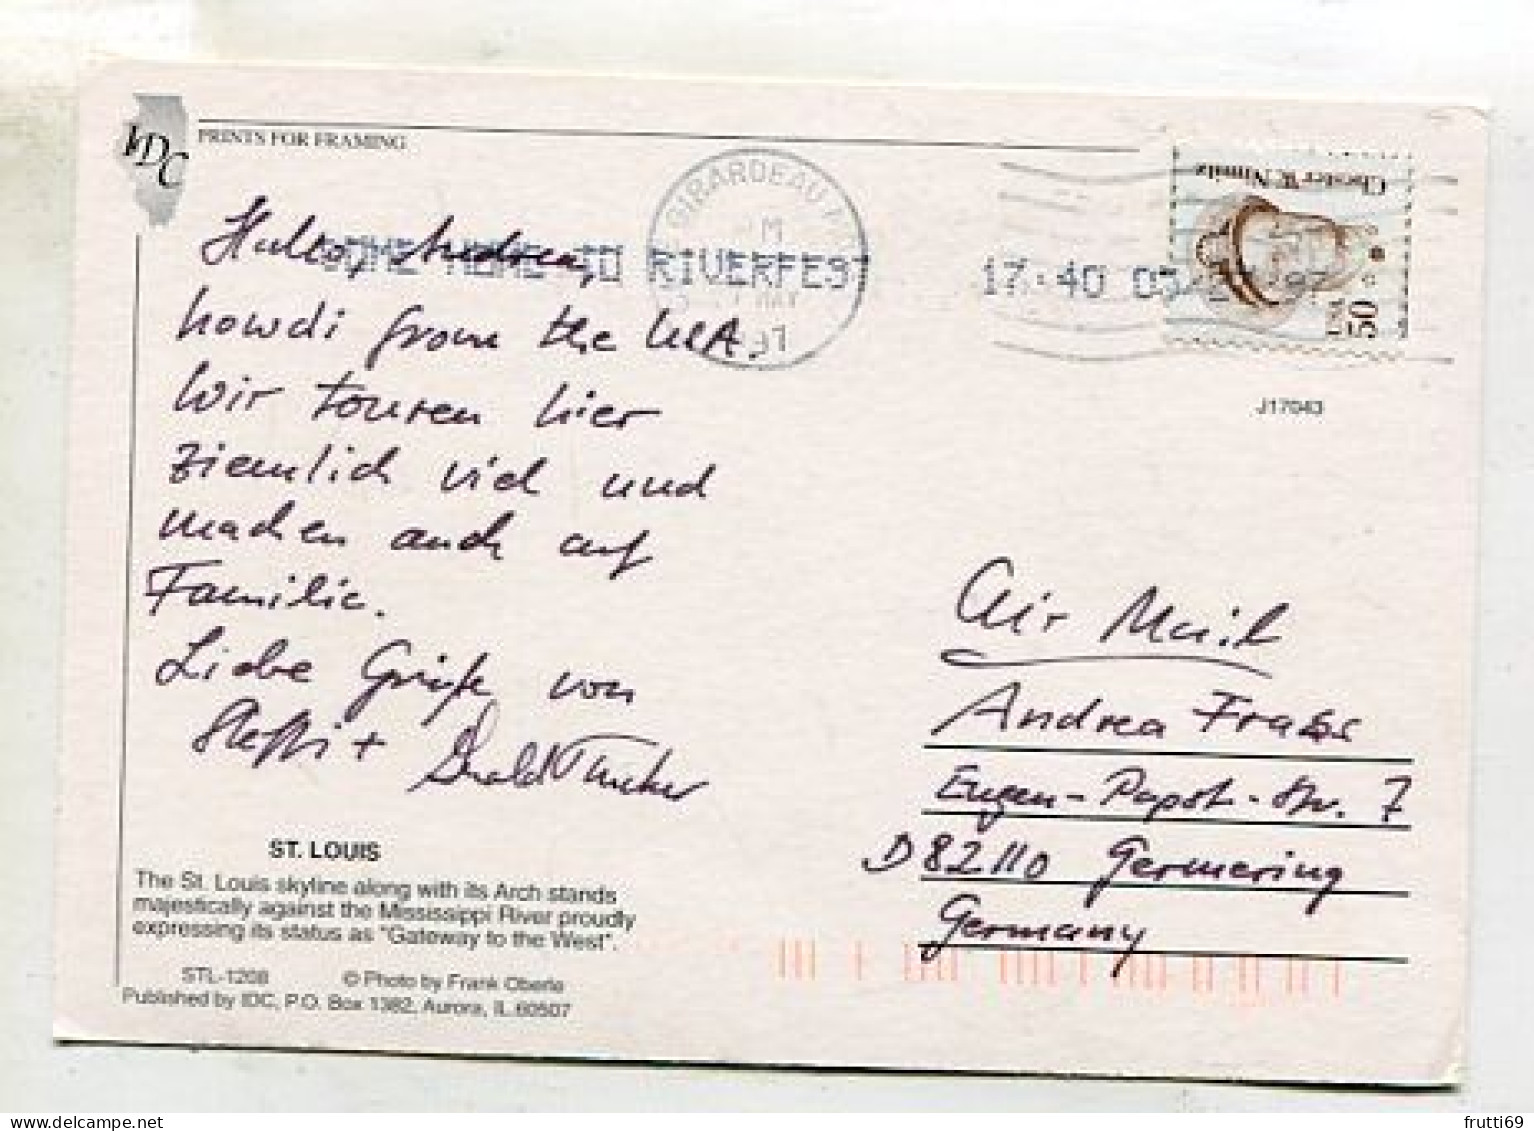 IDC
PRINTS FOR FRAMING
GIRARDEAU
COME HOME TO RIVERFEST
17:40 05
MAY
Chester W. Nimitz
USA
50
J17043
Hallo, Andrea,
howdi from the USA.
Wir touren hier
ziemlich viel und
machen auch auf
Familie.
Liebe Grüße von
Steffi +
Air Mail
Andrea
Eugen-Papst-Str. 7
D 82110 Germering
Germany
ST. LOUIS
The St. Louis skyline along with its Arch stands
majestically against the Mississippi River proudly
expressing its status as "Gateway to the West".
STL-1208 © Photo by Frank Oberle
Published by IDC, P.O. Box 1382, Aurora, IL 60507
frutti69